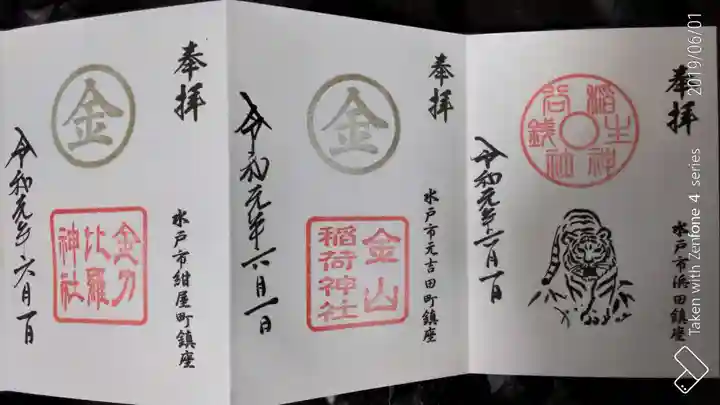 奉拝
水戸市浜田鎮座
銭谷稲生神社
令和元年六月一日
奉拝
水戸市元吉田町鎮座
金
金山
稲荷神社
令和元年六月一日
奉拝
水戸市紺屋町鎮座
金
金刀
比羅
神社
令和元年六月一日
2019/06/01
Taken with Zenfone 4 series